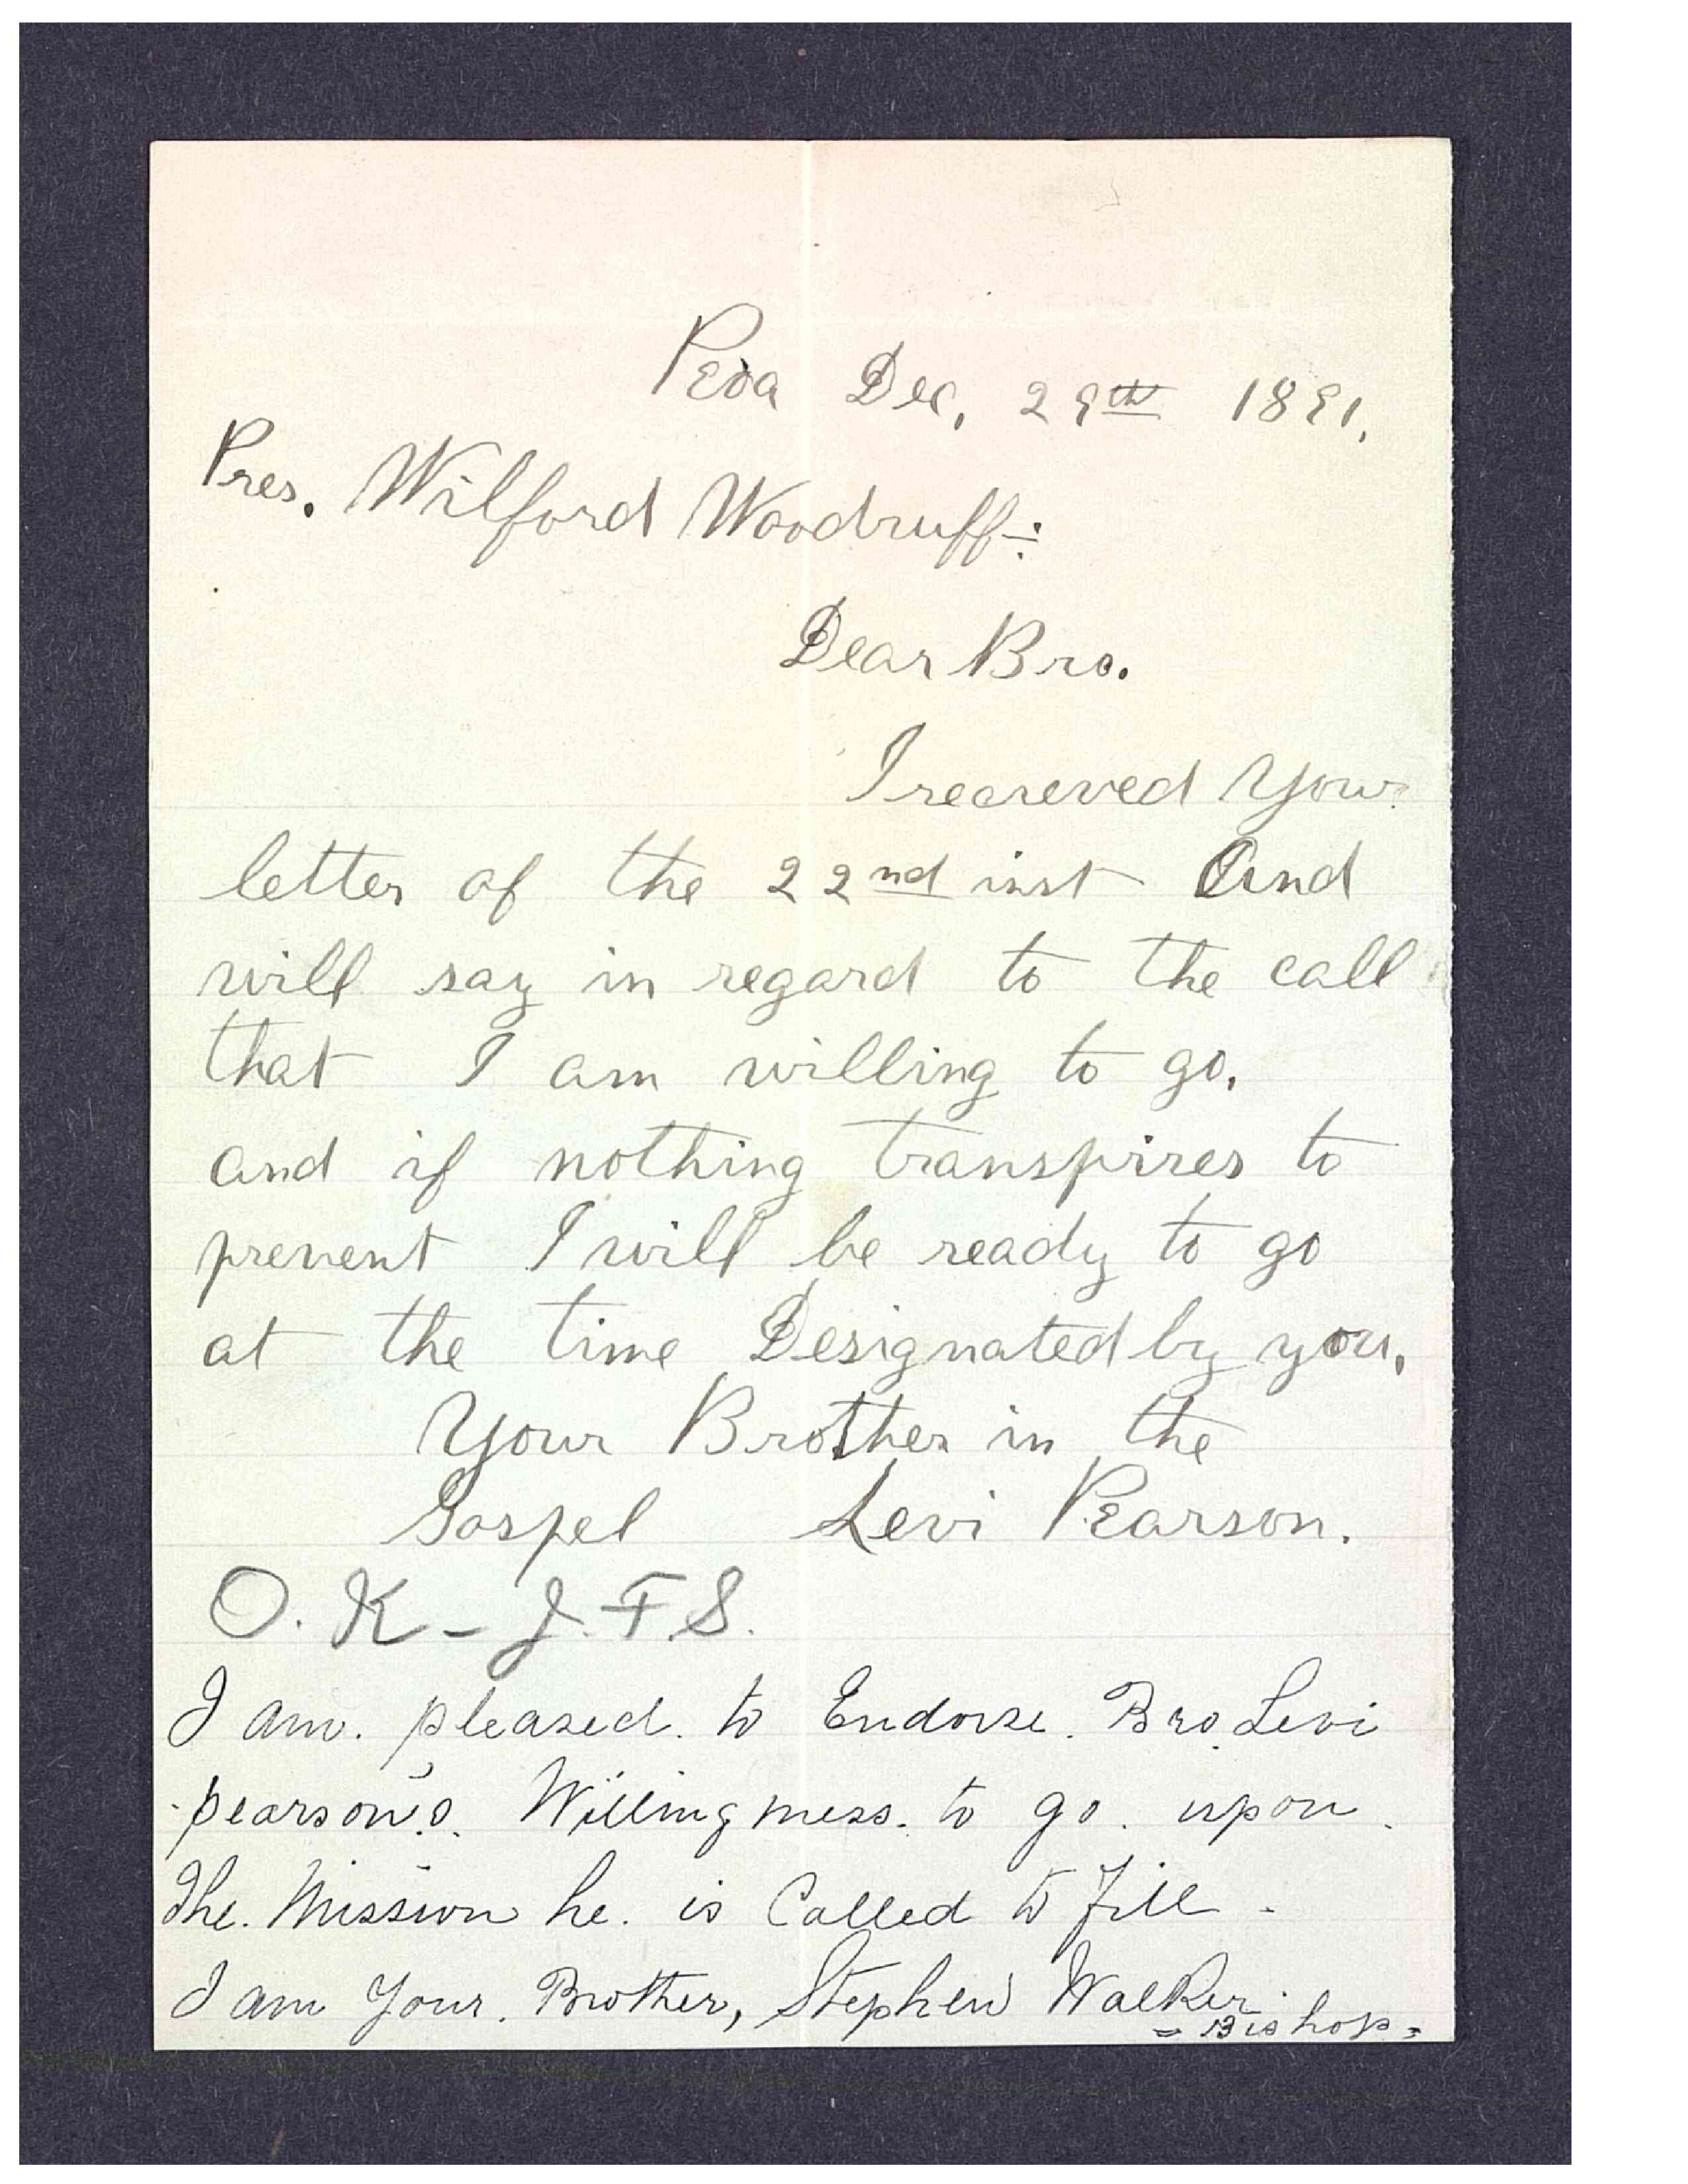 Peoa Dec, 29th 1891.
Pres. Wilford Woodruff:
Dear Bro.
I recreved Your
letter of the 22nd inst And
will say in regard to the call
that I am willing to go,
and if nothing transpires to
prevent I will be ready to go
at the time Designated by you,
Your Brother in the
Gospel Levi Pearson.
O. K - J. F. S.
I am. pleased. to Endorse. Bro. Levi
pearson's. Willingness. to go. upon.
The. Mission he. is Called to Fill -
I am Your. Brother, Stephen Walker.
= Bishop =